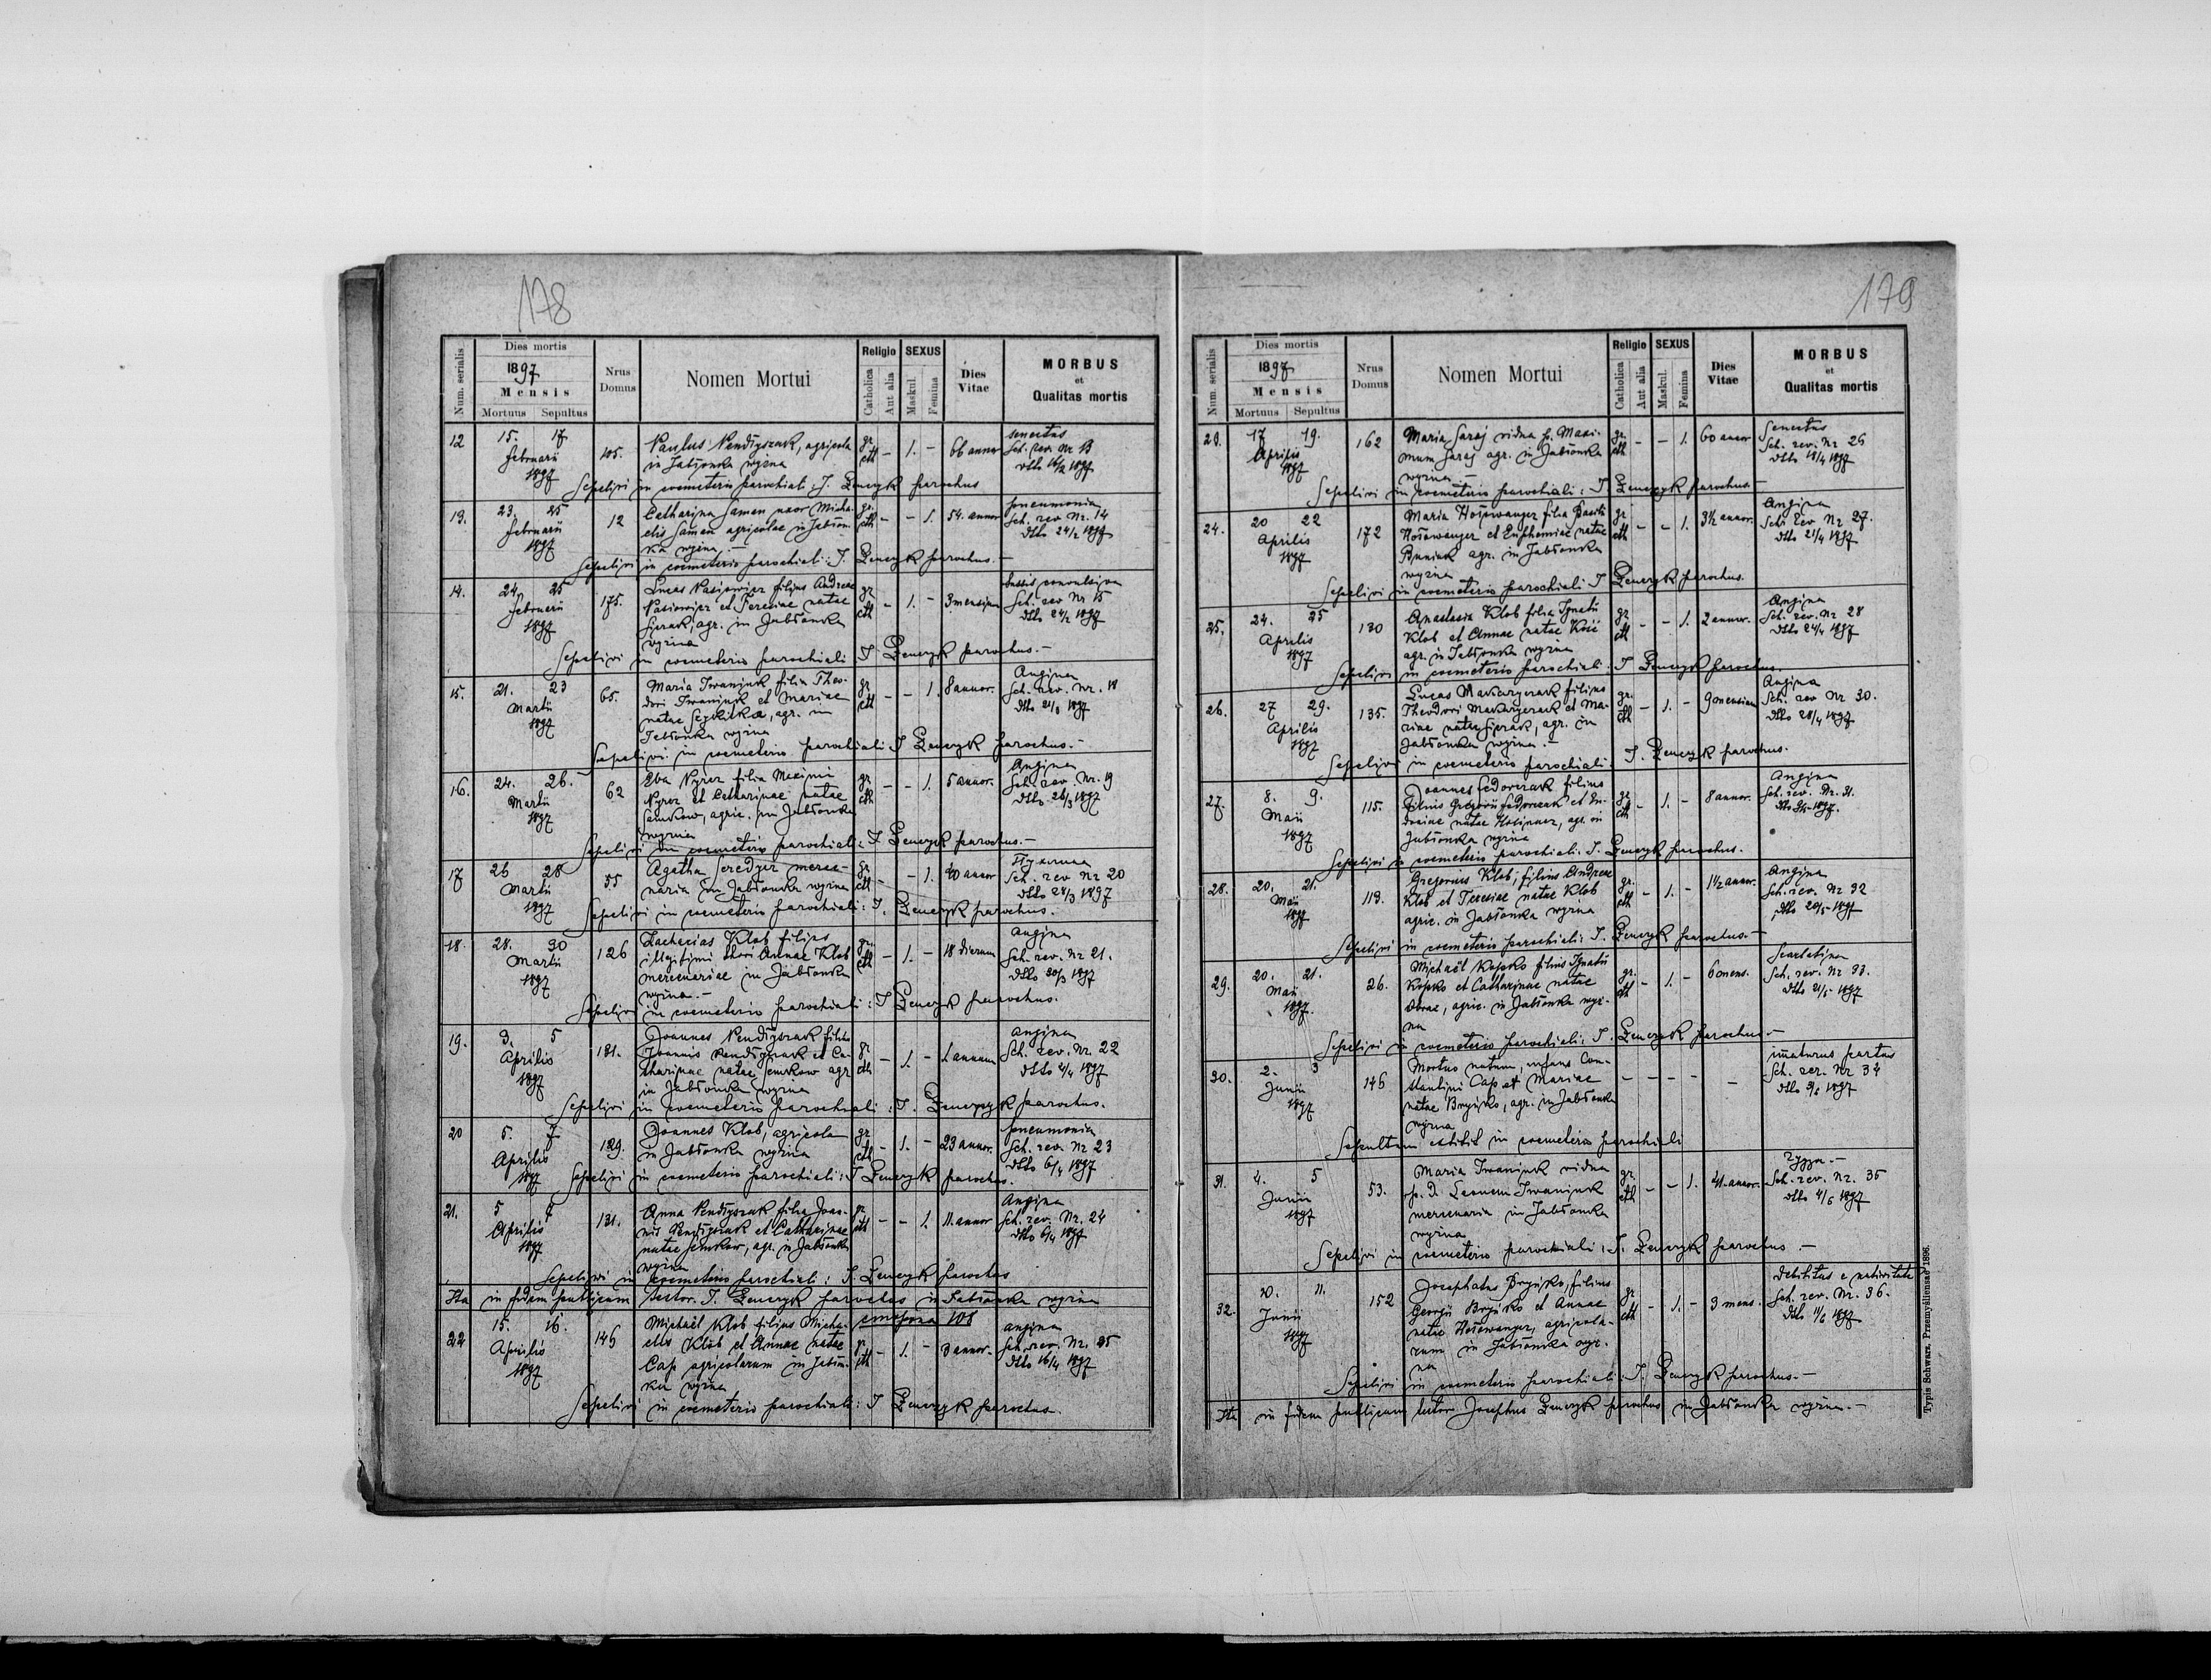 178
Num. serialis
Dies mortis
1897
Mensis
Mortuus Sepultus
Nrus Domus
Nomen Mortui
Religio
Catholica
Aut alia
SEXUS
Maskul.
Femina
Dies Vitae
MORBUS
et
Qualitas mortis
12 15. 17. 105. Paulus Pendyszak, agricola gr. - 1. - 66 annor senectus
Februarii in Jabłonka wyzna cth Sch. rev. Nr 13
1897 dtto 16/2 1897
Sepelivi in coemeterio parochiali: J. Zenczyk parochus
13. 23. 25 12 Catharina Saman uxor Micha- gr. - - 1. 54. annor pneumonia
Februarii elis Saman agricolae in Jabłon- cth Sch. rev Nr. 14
1897 ka wyzna dtto 24/2 1897
Sepelivi in coemeterio parochiali: J. Zenczyk parochus.
14. 24. 25 175. Lucas filius Andreae gr - 1. - 3 mensium tussis convulsiva
Februarii et Teresiae natae cth Sch. rev Nr 15
1897 agr. in Jabłonka dtto 24/2 1897
wyzna
Sepelivi in coemeterio parochiali J Zenczyk parochus.-
15. 21. 23 65. Maria Iwaniuk filia Theo- gr - - 1. 8 annor. Angina
Martii dori Iwaniuk et Mariae cth Sch. rev. Nr. 18
1897 natae agr. in dtto 21/3 1897
Jabłonka wyzna
Sepelivi in coemeterio parochiali J Zenczyk parochus.-
16. 24. 26. 62 Eva Pyrcz filia Maximi gr - - 1. 5 annor. Angina
Martii Pyrcz et Catharinae natae cth Sch. rev. Nr. 19
1897 Semkow, agric. in Jabłonka dtto 26/3 1897
wyzna
Sepelivi in coemeterio parochiali: J Zenczyk parochus.-
17 26 28 55 Agatha Seredzer merce- gr - - 1. 40 annor
Martii naria in Jabłonka wyzna cth Sch. rev Nr 20
1897 dtto 28/3 1897
Sepelivi in coemeterio parochiali: J. Zenczyk parochus.
18. 28. 30 126 Zacharias Klob filius gr. - 1. - 18 dierum angina
Martii illegitimi thori Annae Klob cth Sch. rev. Nr 21.
1897 mercenariae in Jabłonka dtto 30/3 1897
wyzna.-
Sepelivi in coemeterio parochiali: J Zenczyk parochus.
19. 3. 5 131. Joannes Pendyszak filius gr - 1. - 1 annum angina
Aprilis Joannis Pendyszak et Ca- cth Sch. rev. Nr. 22
1897 tharinae natae Semkow agr dtto 4/4 1897
in Jabłonka wyzna
Sepelivi in coemeterio parochiali: J. Zenczyk parochus.
20 5. 7. 129. Joannes Klob, agricola gr - 1. - 23 annor. pneumonia
Aprilis in Jabłonka wyzna cth Sch. rev. Nr 23
1897 dtto 6/4 1897
Sepelivi in coemeterio parochiali: J Zenczyk parochus.
21. 5 7 131. Anna Pendyszak filia Joan- gr - - 1. 11. annor Angina
Aprilis nis Pendyszak et Catharinae cth Sch. rev. Nr. 24
1897 natae Semkow, agr. in Jabłonka dtto 6/4 1897
wyzna
Sepelivi in coemeterio parochiali: J. Zenczyk parochus
Ita in fidem publicam testor. J. Zenczyk parochus in Jabłonka wyzna
22 15. 16. 149 Michaël Klob filius Micha- gr. - 1. - 3 annor. angina
Aprilis elis Klob et Annae natae cth Sch. rev. Nr. 25
1897 Cap agricolarum in Jabłon- dtto 16/4 1897
ka wyzna
Sepelivi in coemeterio parochiali: J Zenczyk parochus.
179
Num. serialis
Dies mortis
1897
Mensis
Mortuus Sepultus
Nrus Domus
Nomen Mortui
Religio
Catholica
Aut alia
SEXUS
Maskul.
Femina
Dies Vitae
MORBUS
et
Qualitas mortis
23. 17 19. 162 Maria Saraj vidua p. Maxi- gr. - - 1. 60 annor Senectus
Aprilis mum Saraj agr. in Jabłonka cth Sch. rev. Nr 26
1897 wyzna dtto 18/4 1897
Sepelivi in coemeterio parochiali: J Zenczyk parochus.-
24. 20 22 172 Maria Hoszwanger filia Basilii gr. - - 1. 3½ annor. Angina
Aprilis Hoszwanger et Euphemiae natae cth Sch. rev Nr 27.
1897 agr. in Jabłonka dtto 21/4 1897
wyzna
Sepelivi in coemeterio parochiali: J Zenczyk parochus.
25. 24. 25 130 Anastasia Klob filia Ignatii gr - - 1. 2 annor. Angina
Aprilis Klob et Annae natae cth Sch. rev. Nr 28
1897 agr. in Jabłonka wyzna dtto 24/4 1897
Sepelivi in coemeterio parochiali: J Zenczyk parochus.
26. 27 29. 135. Lucas Makaryczak filius gr. - 1. - 9 mensium Angina
Aprilis Theodori Makaryczak et Ma- cth Sch. rev Nr 30.
1897 riae natae agr. in dtto 28/4 1897
Jabłonka wyzna.-
Sepelivi in coemeterio parochiali. J. Zenczyk parochus.
27 8. 9. 115. Joannes Fedorczak filius gr - 1. - 8 annor. Angina
Maii filius Gregorii Fedorczak et Eu- cth Sch. rev. Nr. 31.
1897 dociae natae agr. in dtto 9/5 1897.
Jabłonka wyzna
Sepelivi in coemeterio parochiali. J. Zenczyk parochus.
28. 20. 21. 113. Gregorius Klob, filius Andreae gr. - 1. - 1½ annor. Angina
Maii Klob et Teresiae natae Klob cth Sch. rev. Nr 32
1897 agric. in Jabłonka wyzna dtto 20/5 1897
Sepelivi in coemeterio parochiali: J. Zenczyk parochus.-
29. 20. 21. 26. Michaël Kopko filius Ignatii gr. - 1. - 6 mens. Scarlatina
Maii Kopko et Catharinae natae cth Sch. rev. Nr 33.
1897. agric. in Jabłonka wyz- dtto 21/5 1897
na
Sepelivi in coemeterio parochiali: J. Zenczyk parochus.-
30. 2. 3 146 Mortuo natum, infans Con- - - - - - imaturus partus
Junii stantini Cap et Mariae Sch. rev. Nr 34
1897 natae Bryńko, agr. in Jabłonka dtto 3/6 1897
wyzna
Sepultum extitit in coemeterio parochiali
31. 4. 5 53. Maria Iwaniuk vidua gr. - - 1. 41. annor.
Junii p. D. Leonem Iwaniuk cth Sch. rev. Nr. 35
1897 mercenaria in Jabłonka dtto 4/6 1897
wyzna
Sepelivi in coemeterio parochiali: J. Zenczyk parochus.-
32. 10. 11. 152 Josephatus Bryńko, filius gr - 1. - 3 mens. Debilitas e nativitate
Junii Georgii Bryńko et Annae cth Sch. rev. Nr. 36.
1897 natae Hoszwanger, agricola- dtto 11/6 1897
rum in Jabłonka wyz-
na
Sepelivi in coemeterio parochiali: J. Zenczyk parochus.-
Ita in fidem publicam testor Josephus Zenczyk parochus in Jabłonka wyzna.-
Typis Schwarz. Przemyśliensae 1896.